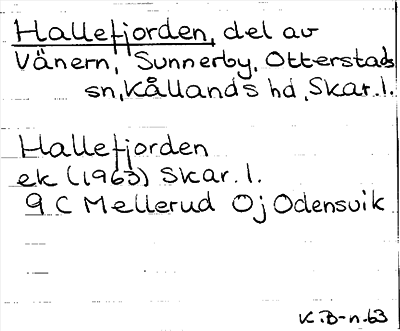 Hallefjorden, del av
Vänern, Sunnerby, Otterstads
sn, Kållands hd, Skar.l.
Hallefjorden
ek (1963) Skar.l.
9 C Mellerud Oj Odensvik
K.B-n.63